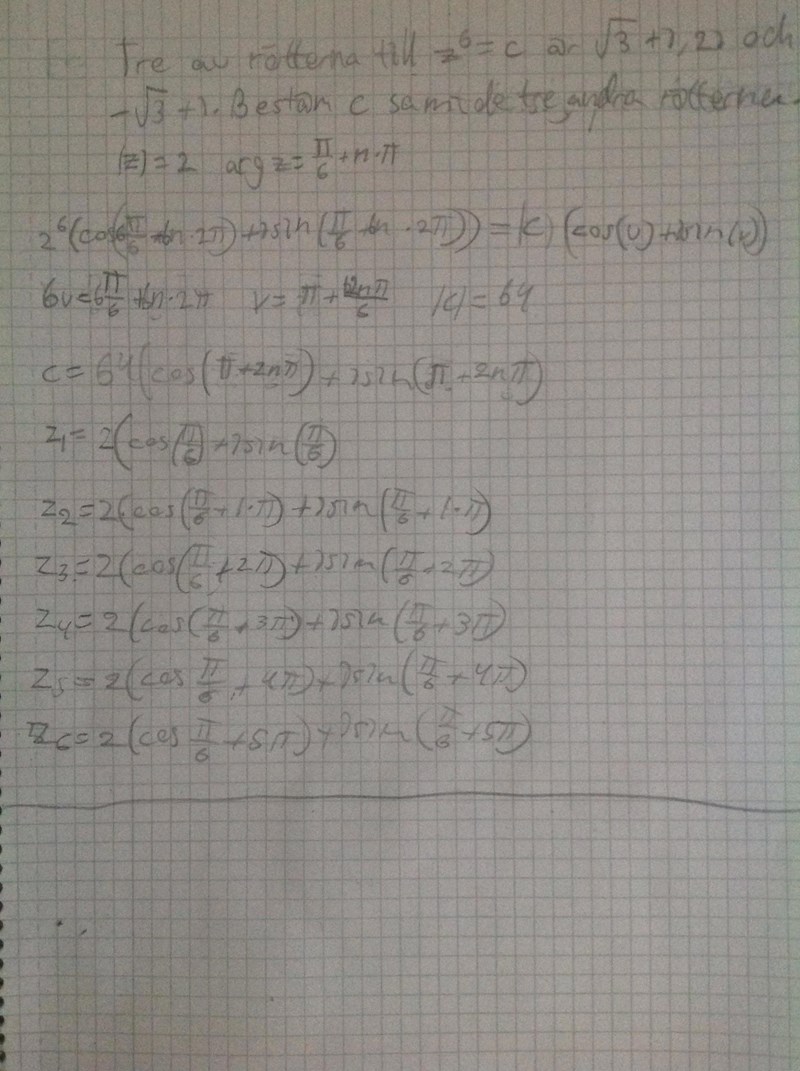 Tre av rötterna till z⁶ = c är √3 + i, 2i och
-√3 + i. Bestäm c samt de tre andra rötterna.
|z| = 2 arg z = π/6 + n·π
2⁶(cos(6π/6 + 6n·2π) + i sin(π/6 + 6n·2π)) = |c| (cos(v) + i sin(v))
6v = 6π/6 + 6n·2π v = π + 12nπ/6 |c| = 64
c = 64(cos(π + 2nπ) + i sin(π + 2nπ)
z₁ = 2(cos(π/6) + i sin(π/6)
z₂ = 2(cos(π/6 + 1·π) + i sin(π/6 + 1·π)
z₃ = 2(cos(π/6 + 2π) + i sin(π/6 + 2π)
z₄ = 2(cos(π/6 + 3π) + i sin(π/6 + 3π)
z₅ = 2(cos π/6 + 4π) + i sin(π/6 + 4π)
z₆ = 2(cos π/6 + 5π) + i sin(π/6 + 5π)